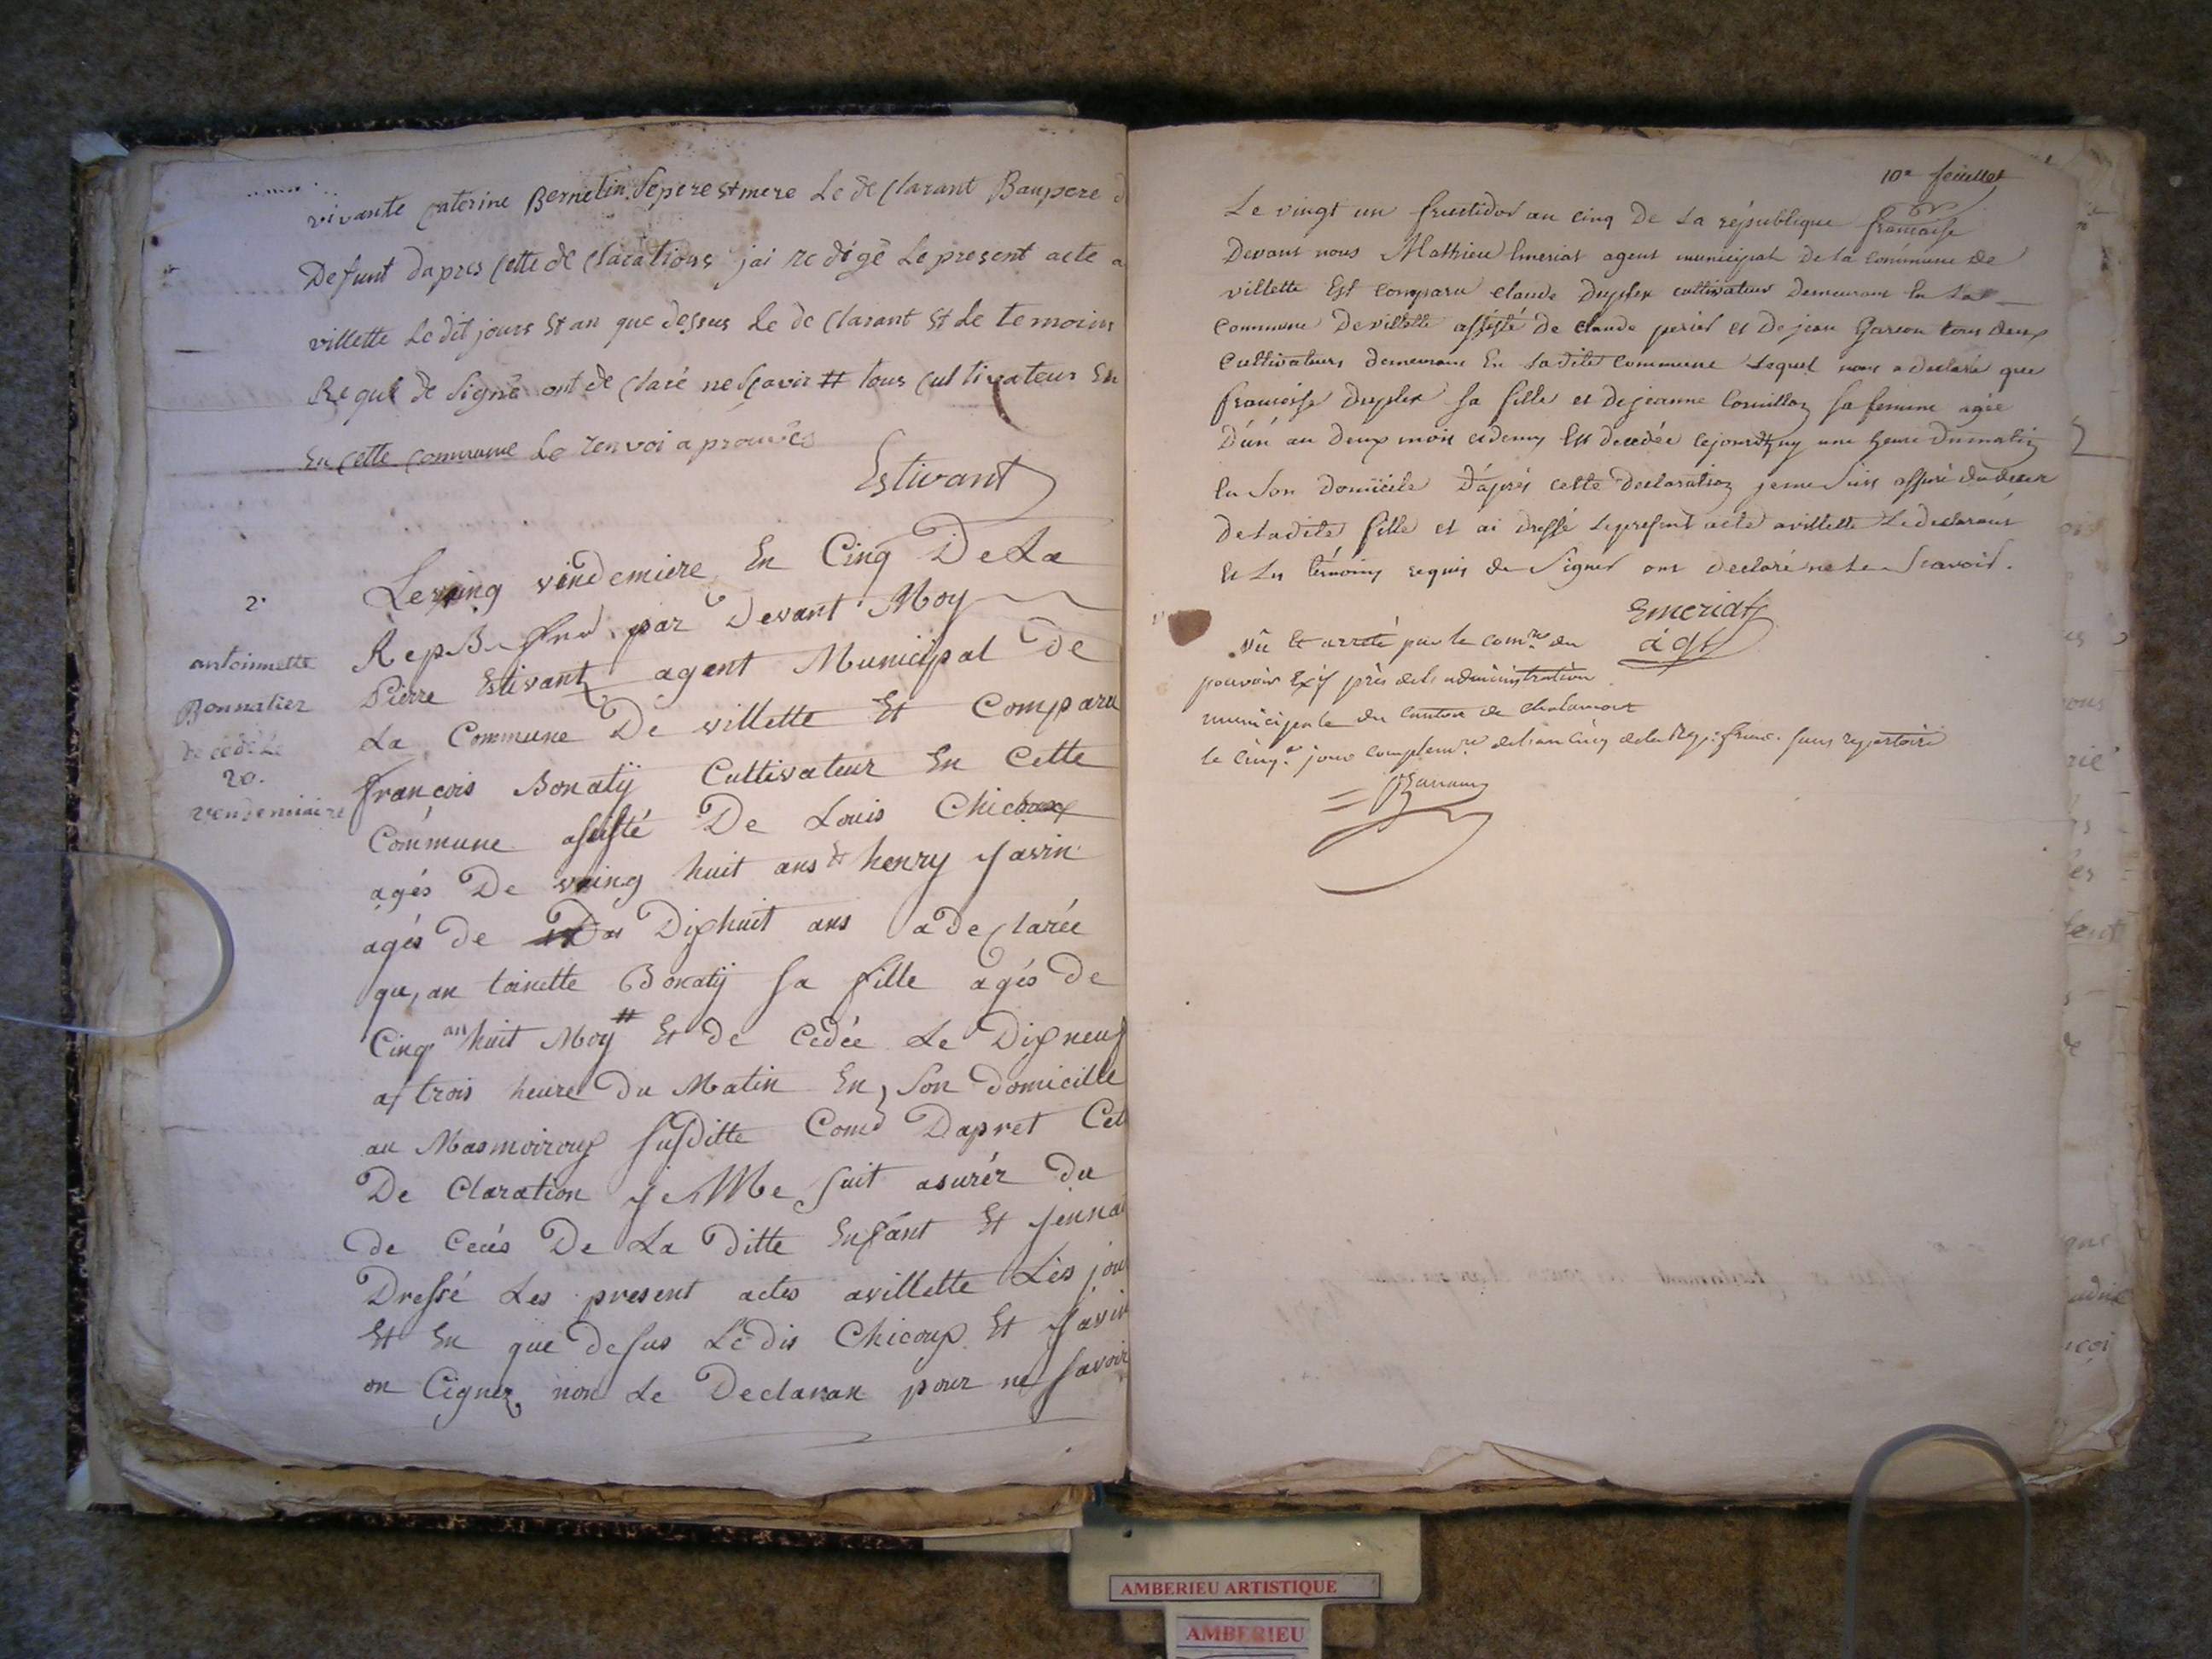 vivante Caterine Bernetin Sepere et mere Le de Clarant Baupere
Defunt dapres Cette de Clarations jai redigé Le present acte a
villette Le dit jours et an que dessus Le de Clarant et Le temoins
Requi de Signé ont de Claré ne Scavoir # tous Cultivateur En
En Cette Commune Le renvoi aprouvés
Estivant
2.
antoinnette
Bonnatier
de cédé Le
20.
vendemiaire
Le ving vindemiere En Cinq De La
Rep. par Devant Moy
Pierre Estivant agent Municipal de
La Commune De villette Et Comparu
francois Bonatij Cultivateur En Cette
Commune asisté De Louis Chicoux
agés De ving huit ans et henry Javin
agés de Dixhuit ans a De Clarée
qu, an toinette Bonatij Sa fille agés De
Cinq an huit Moy # Et de Cedée Le Dixneuf
a trois heure Du Matin En Son Domicille
au Masmoiroux Susditte Com Dapret Cet
De Claration je Me Suit asurér Du
de Ceces De La Ditte Enfant Et jennai
Dressé Les present actes avillette Les jou
Et En que desus Lédis Chicoux Et Javin
on Cignez non Le Declaran pour ne Savoir
10e feuillet
Le vingt un fructidor an cinq De La république francaise
Devant nous Mathieu Emeriat agent municipal De la Commune de
villette Est Comparu Claude Duplex cultivateur Demeurant En La
Commune De villette assisté De Claude perier et De jean Garcon tous deux
Cultivateurs demeurant En Sadite Commune Lequel nous a declaré que
francoise Duplex Sa fille et De jeanne Cornillon Sa femme agée
D'un an Deux mois et demy Est decedée Cejourdhuy une heure Dumatin
En Son Domicile D'après cette Declaration jeme Suis assuré du deces
De Ladite fille et ai dressé Le present acte a villette Le declarant
Et Les témoins requis de Signer ont declaré ne Le Scavoir.
Emeriat
agt
Vû Et arreté par le comre du
pouvoir Exif près de l'administration
municipale du Canton de Chalamont
le Cinq.e jour Complemre de l'an Cinq de la Rep. franc. sans repertoire